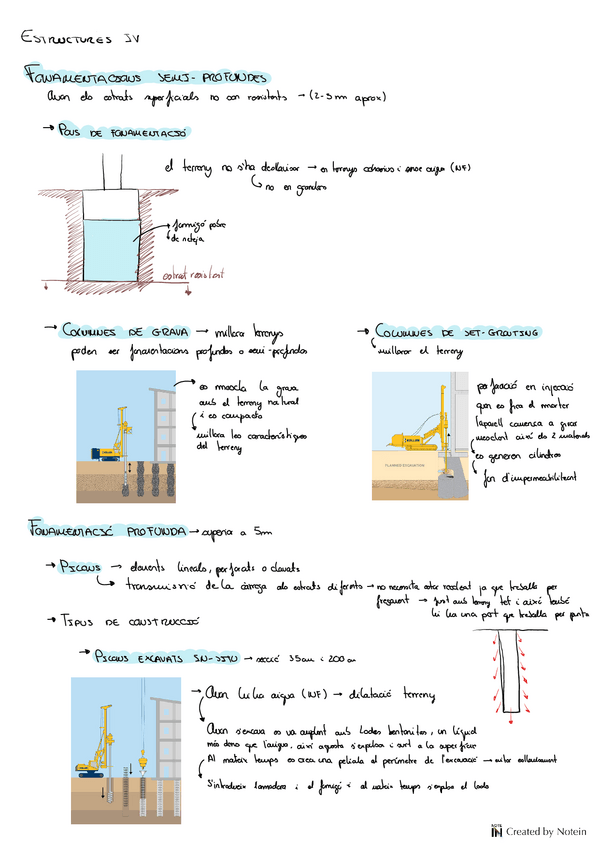 ESTRUCTURES IV
FONAMENTACIONS SEMI-PROFUNDES
Quan els estrats superficials no son resistents → (2-5m aprox)
→ POUS DE FONAMENTACIÓ
el terreny no s'ha d'esllavissar → en terrenys cohesius i sense aigua (NF)
↳ no en granulars
formigó pobre
de neteja
estrat resistent
→ COLUMNES DE GRAVA → millora terrenys
poden ser fonamentacions profundes o semi-profundes
es mescla la grava
amb el terreny natural
i es compacta
millora les característiques
del terreny
→ COLUMNES DE JET-GROUTING
millorar el terreny
perforació en injecció
quan es fica el morter
l'aparell comença a girar
mesclant així els 2 materials
es generen cilindres
fan d'impermeabilitzant
PLANNED EXCAVATION
FONAMENTACIÓ PROFUNDA → superior a 5m
→ PILONS → elements lineals, perforats o clavats
↳ transmissió de la càrrega als estrats diferents → no necessita estrat resistent ja que treballa per
fregament → just amb terreny tot i així també
hi ha una part que treballa per punta
→ TIPUS DE CONSTRUCCIÓ
→ PILONS EXCAVATS IN-SITU → secció 35cm i 200cm
→ Quan hi ha aigua (NF) → dilatació terreny
Quan s'excava es va omplint amb llodes bentonites, un líquid
més dens que l'aigua, així aquesta s'expulsa i surt a la superfície
Al mateix temps es crea una pel·lícula al perímetre de l'excavació → evitar esllavissament
S'introdueix l'armadura i el formigó i al mateix temps s'expulsa el llodo
NOTE IN Created by Notein